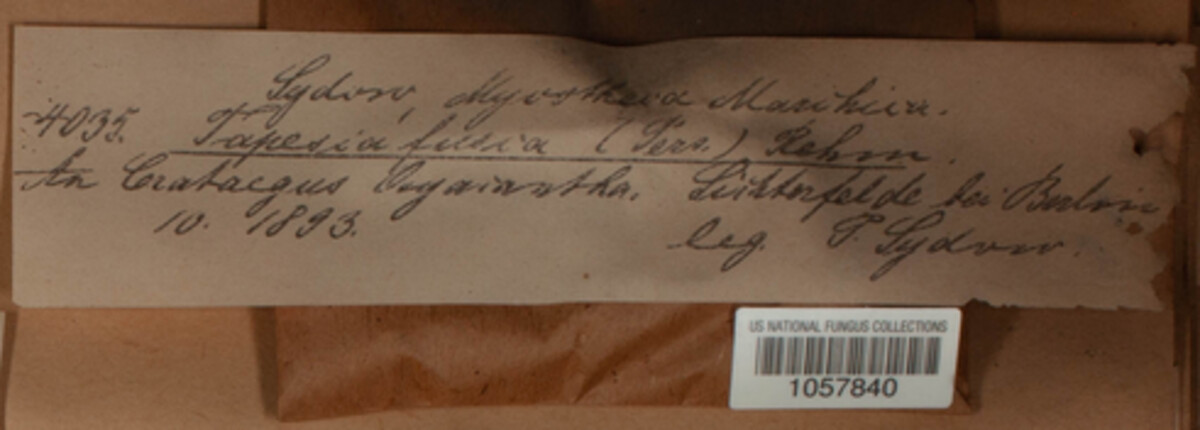 Sydow, Mycotheca Marchica.
4035. Tapesia fusca (Pers.) Rehm.
An Crataegus Oxyacantha. Lichterfelde bei Berlin
10. 1893.
leg. P. Sydow.
US NATIONAL FUNGUS COLLECTIONS
1057840